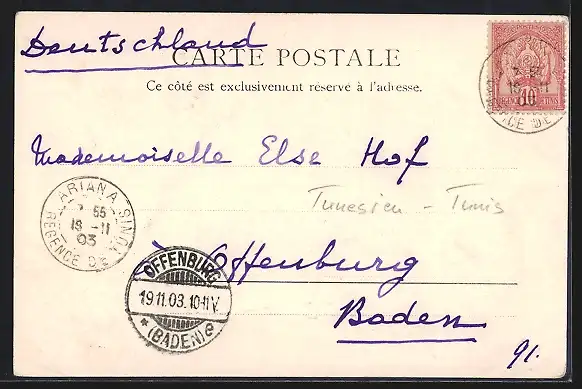 Deutschland
CARTE POSTALE
Ce côté est exclusivement réservé à l'adresse.
10
Mademoiselle Else Hof
Tunesien - Tunis
ARIANA
55
18 -11
03
REGENCE DE TUNIS
à Offenburg
OFFENBURG
19.11.03.10-11V.
* (BADEN) 2
Baden
91.